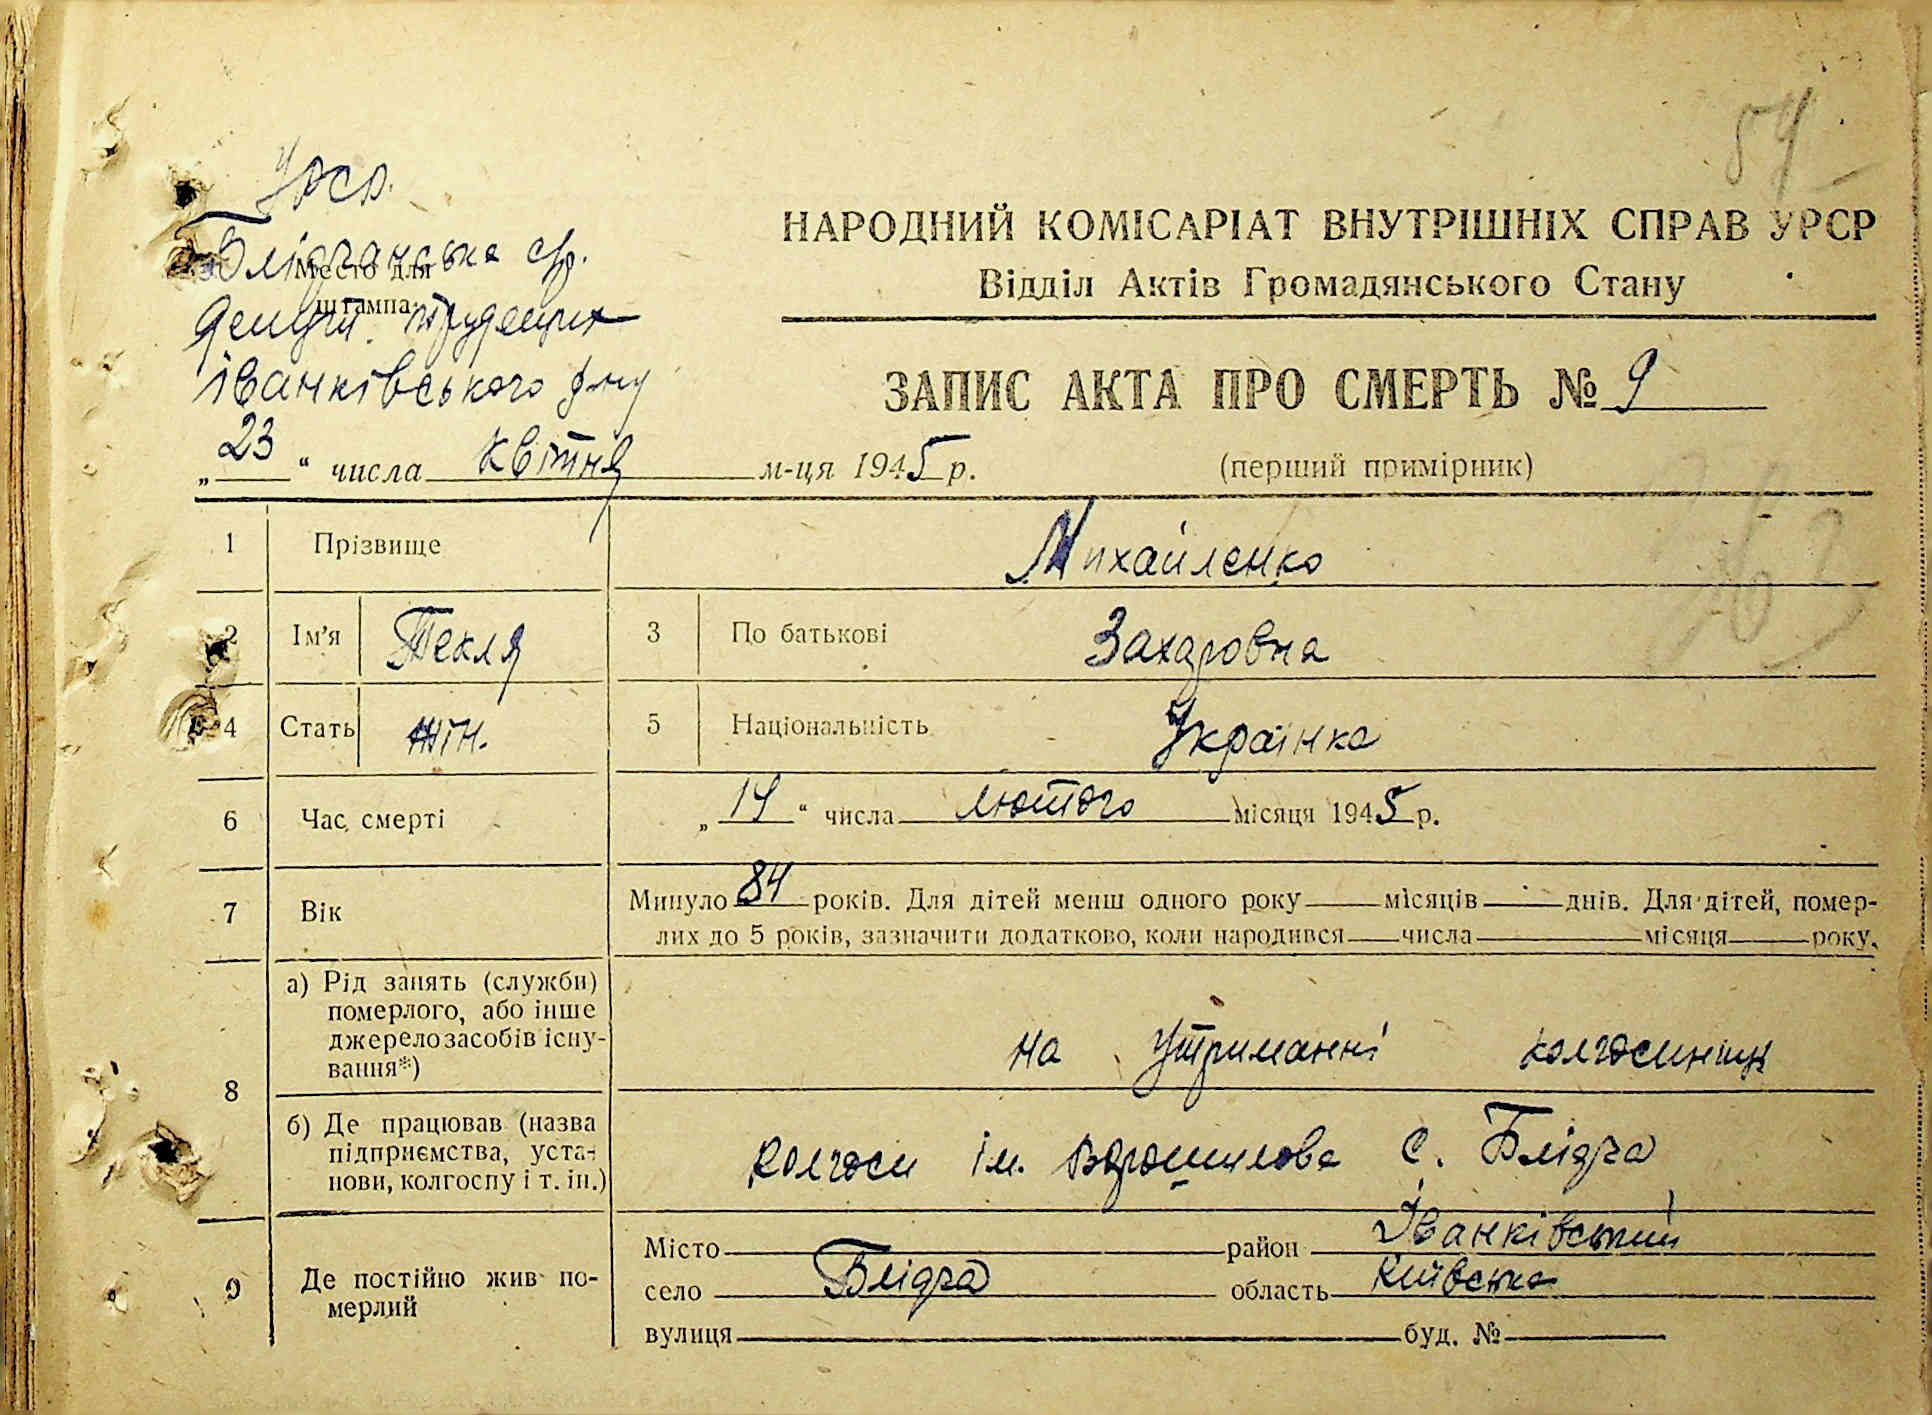 54
УРСР.
НАРОДНИЙ КОМІСАРІАТ ВНУТРІШНІХ СПРАВ УРСР
Блідчанська с/р.
Место для
штампа
Відділ Актів Громадянського Стану
трудящих
Іванківського р-ну
ЗАПИС АКТА ПРО СМЕРТЬ № 9
„23“ числа квітня м-ця 1945 р.
(перший примірник)
1 Прізвище Михайленко
2 Ім'я Текля 3 По батькові Захаровна
4 Стать жін. 5 Національність Українка
6 Час смерті „14“ числа лютого місяця 1945 р.
7 Вік Минуло 84 років. Для дітей менш одного року місяців днів. Для дітей, помер-
лих до 5 років, зазначити додатково, коли народився числа місяця року.
8 а) Рід занять (служби)
померлого, або інше
джерело засобів існу-
вання*)
на утриманні
б) Де працював (назва
підприємства, уста-
нови, колгоспу і т. ін.)
колгосп ім. Ворошилова с. Блідча
9 Де постійно жив по-
мерлий
Місто район Іванківський
село Блідча область Київська
вулиця буд. №